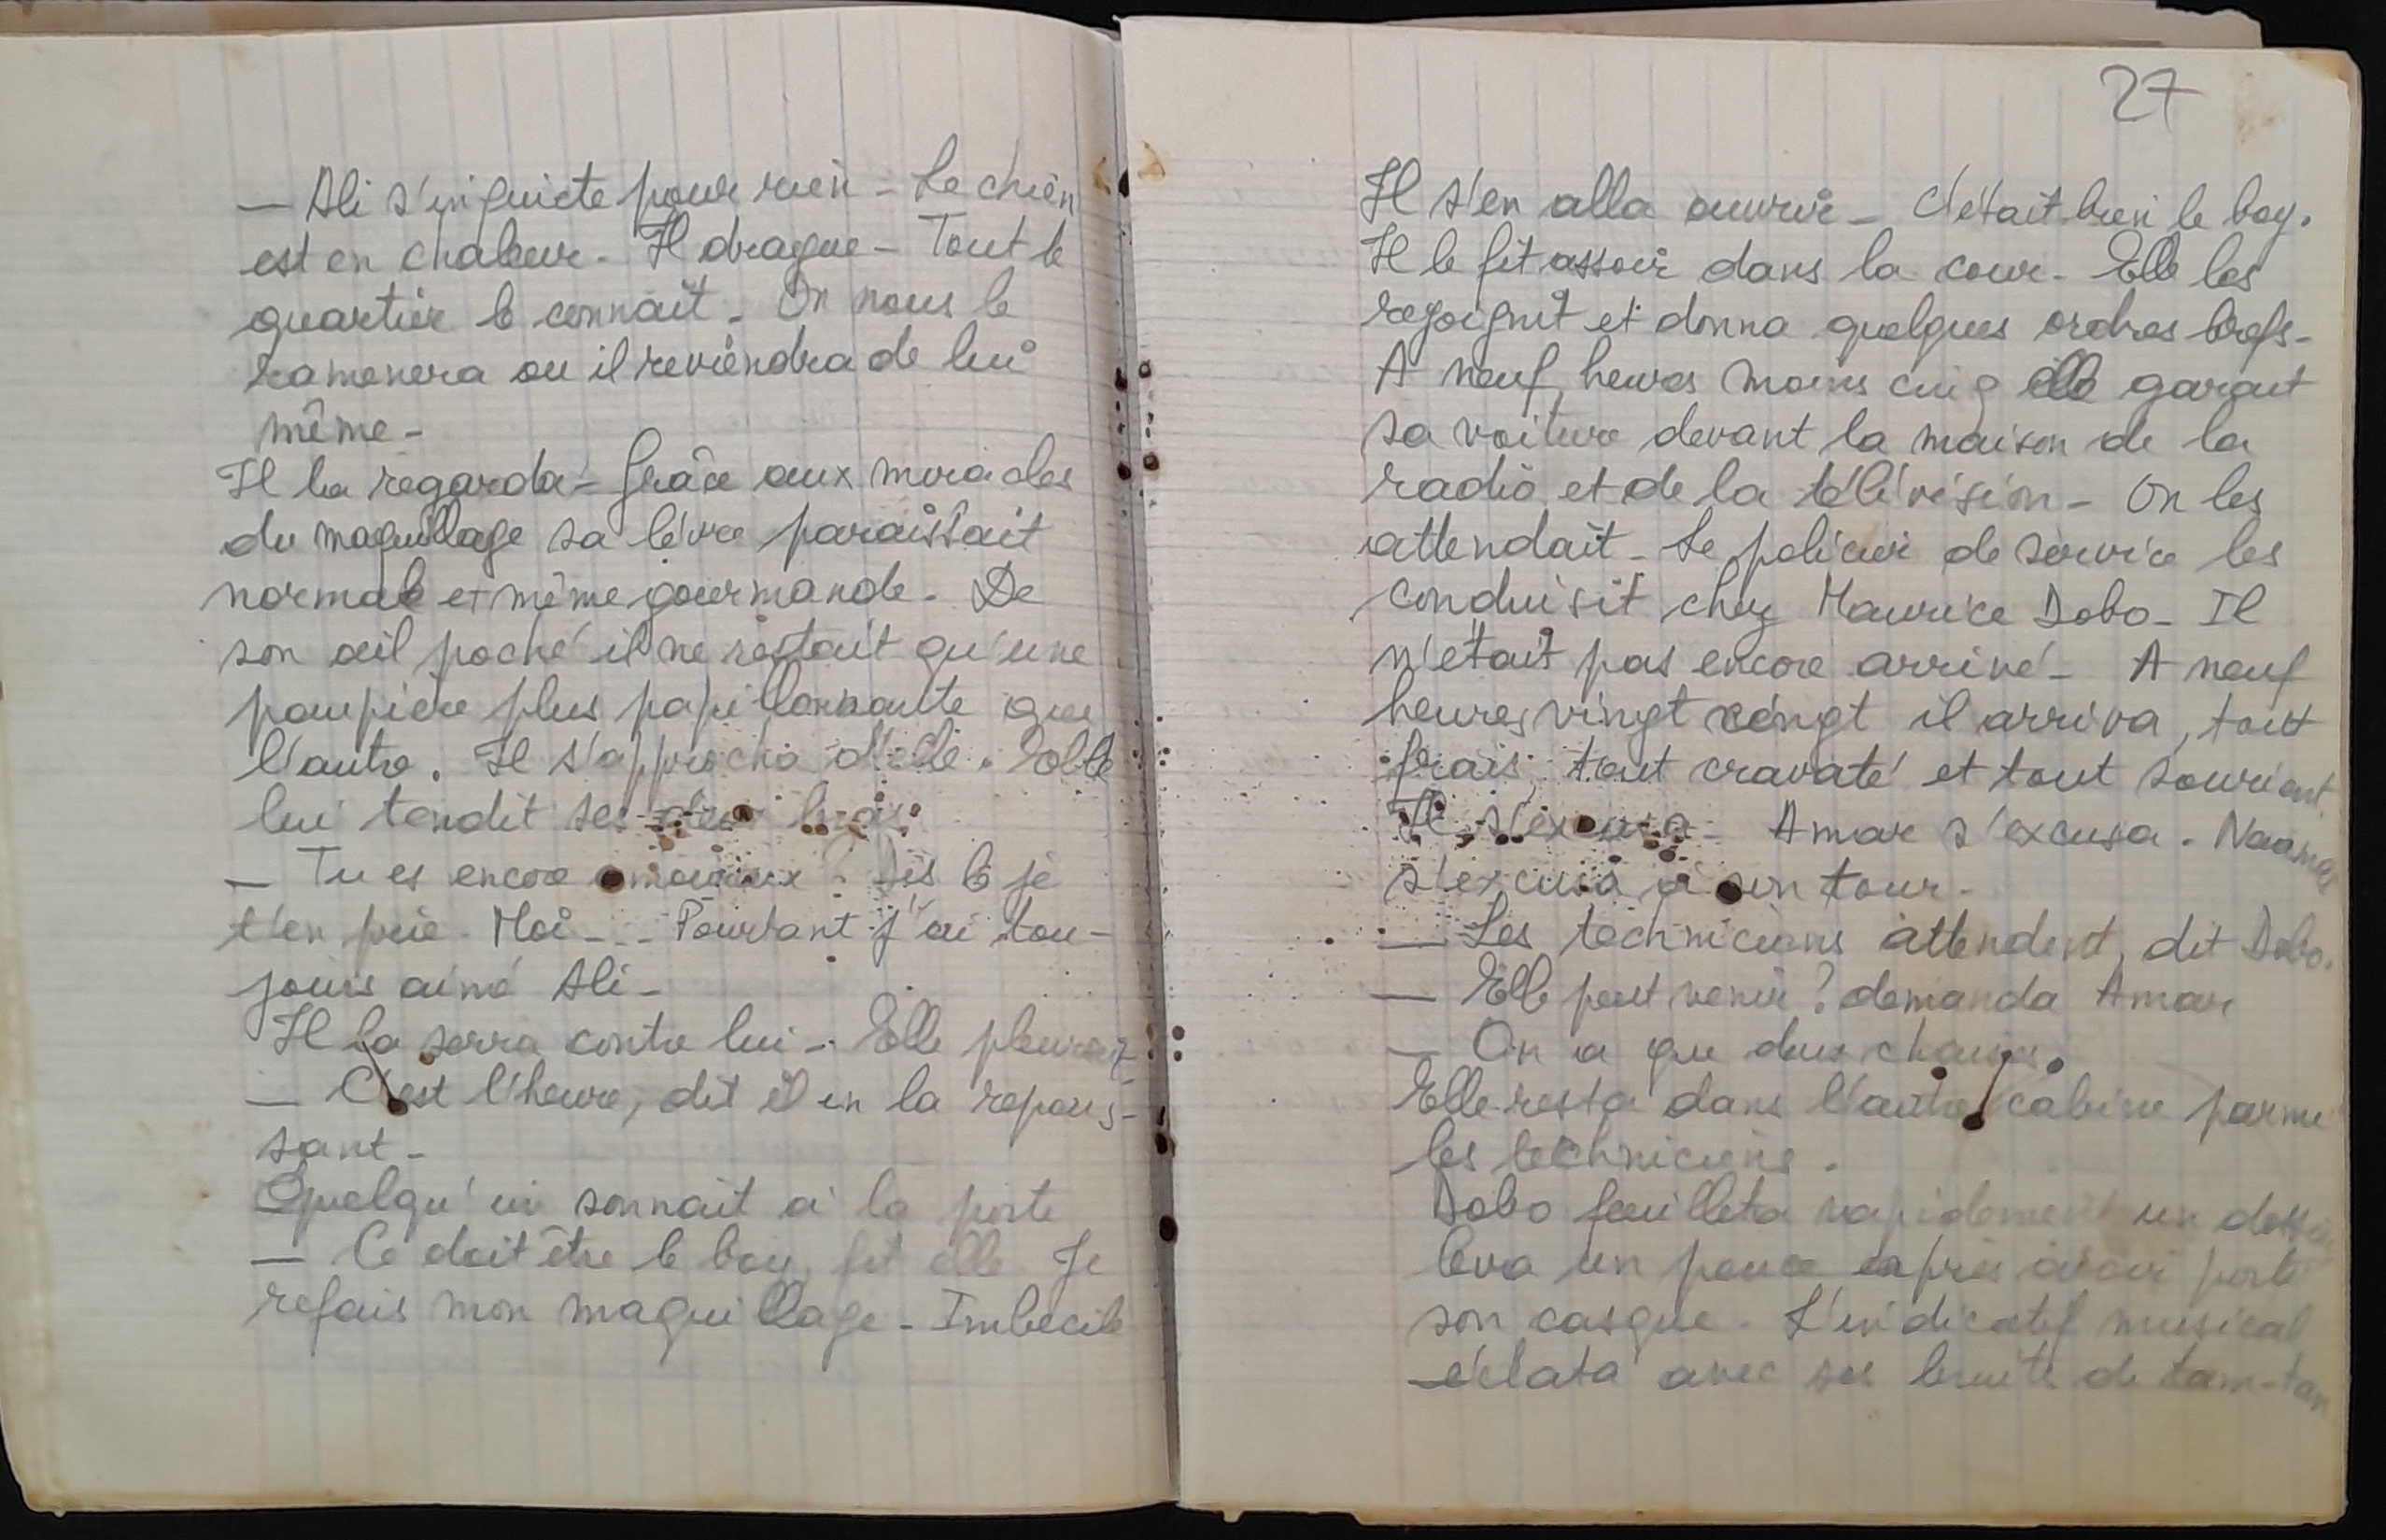 — Ali s'inquiete pour rien - Le chien
est en chaleur. Il drague - Tout le
quartier le connait. On nous le
ramenera ou il reviendra de lui
même -
Il la regarda - Grâce aux miracles
du maquillage sa lèvre paraissait
normale et même gourmande. De
son œil poché il ne restait qu'une
paupière plus papillonnante que
l'autre. Il s'approcha d'elle. Elle
lui tendit ses deux bras
— Tu es encore amoureux ? Dis le je
t'en prie. Moi - - - Pourtant j'ai tou-
jours aimé Ali -
Il la serra contre lui - Elle pleurait
— C'est l'heure, dit il en la repous-
sant -
Quelqu'un sonnait à la porte
— Ce doit être le boy, fit elle. Je
refais mon maquillage - Imbecile
27
Il s'en alla ouvrir - C'était bien le boy.
Il le fit assoir dans la cour - Elle les
rejoignit et donna quelques ordres brefs -
A neuf heures moins cinq elle garait
sa voiture devant la maison de la
radio et de la télévision - On les
attendait - Le policier de service les
conduisit chez Maurice Dobo - Il
n'etait pas encore arrivé - A neuf
heures vingt cinq il arriva, tout
frais, tout cravaté et tout souriant
Il s'excusa - Amar s'excusa. Naama
s'excusa à son tour -
— Les techniciens attendent, dit Dobo.
— Elle peut venir ? demanda Amar
— On a que deux chaises.
Elle resta dans l'autre cabine parmi
les techniciens.
Dobo feuilleta rapidement un dossier
leva un pouce après avoir porté
son casque. L'indicatif musical
éclata avec ses bruits de tam-tam